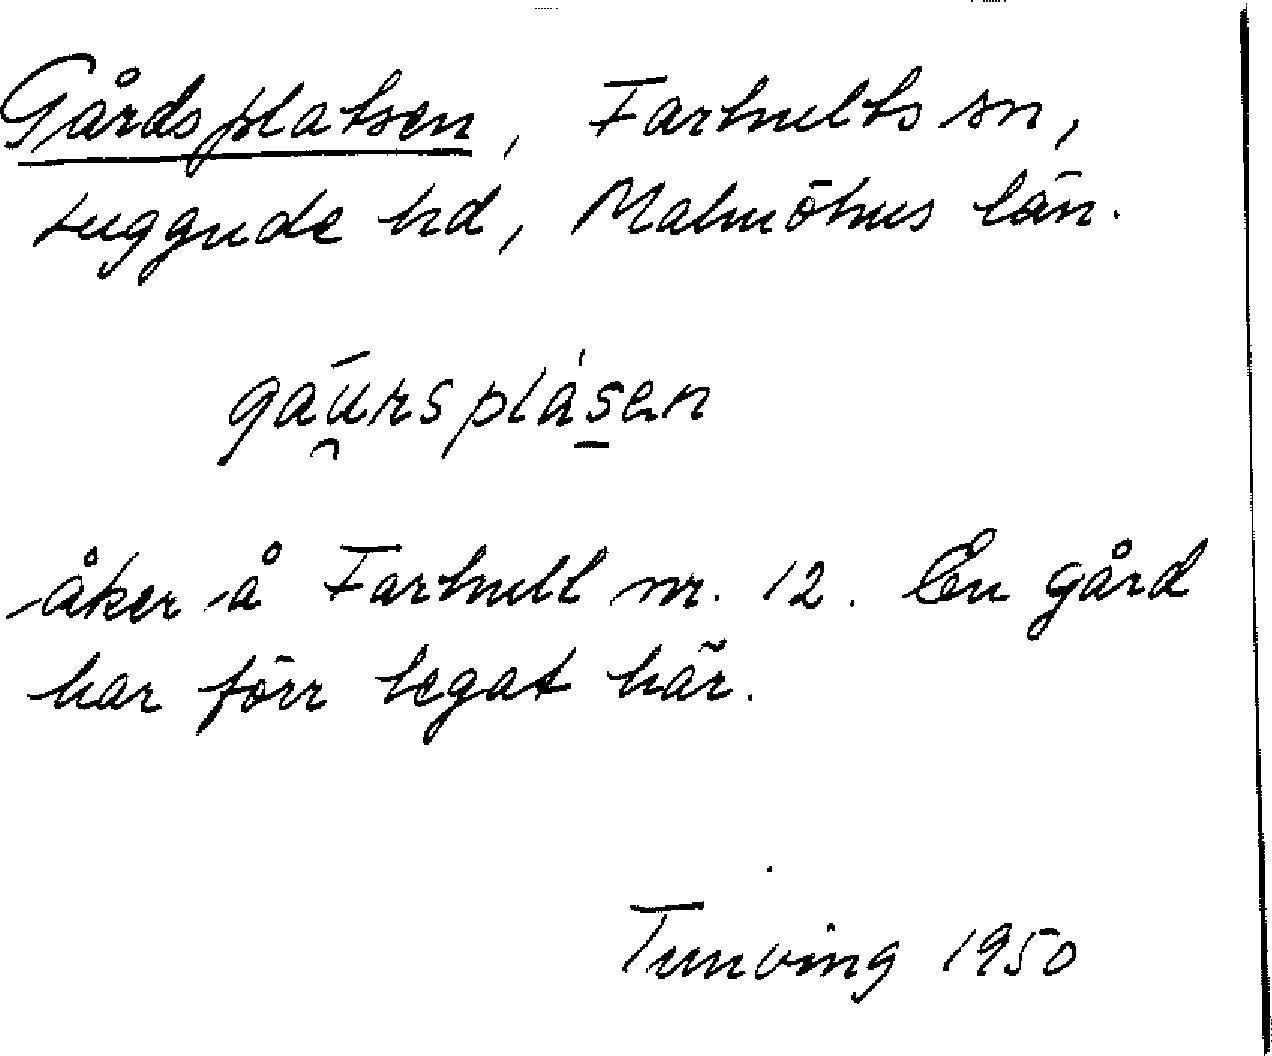 Gårdsplatsen, Farhults sn,
Luggude hd, Malmöhus län.
gau̯rsplásen
åker å Farhult nr. 12. En gård
har förr legat här.
Tunving 1950